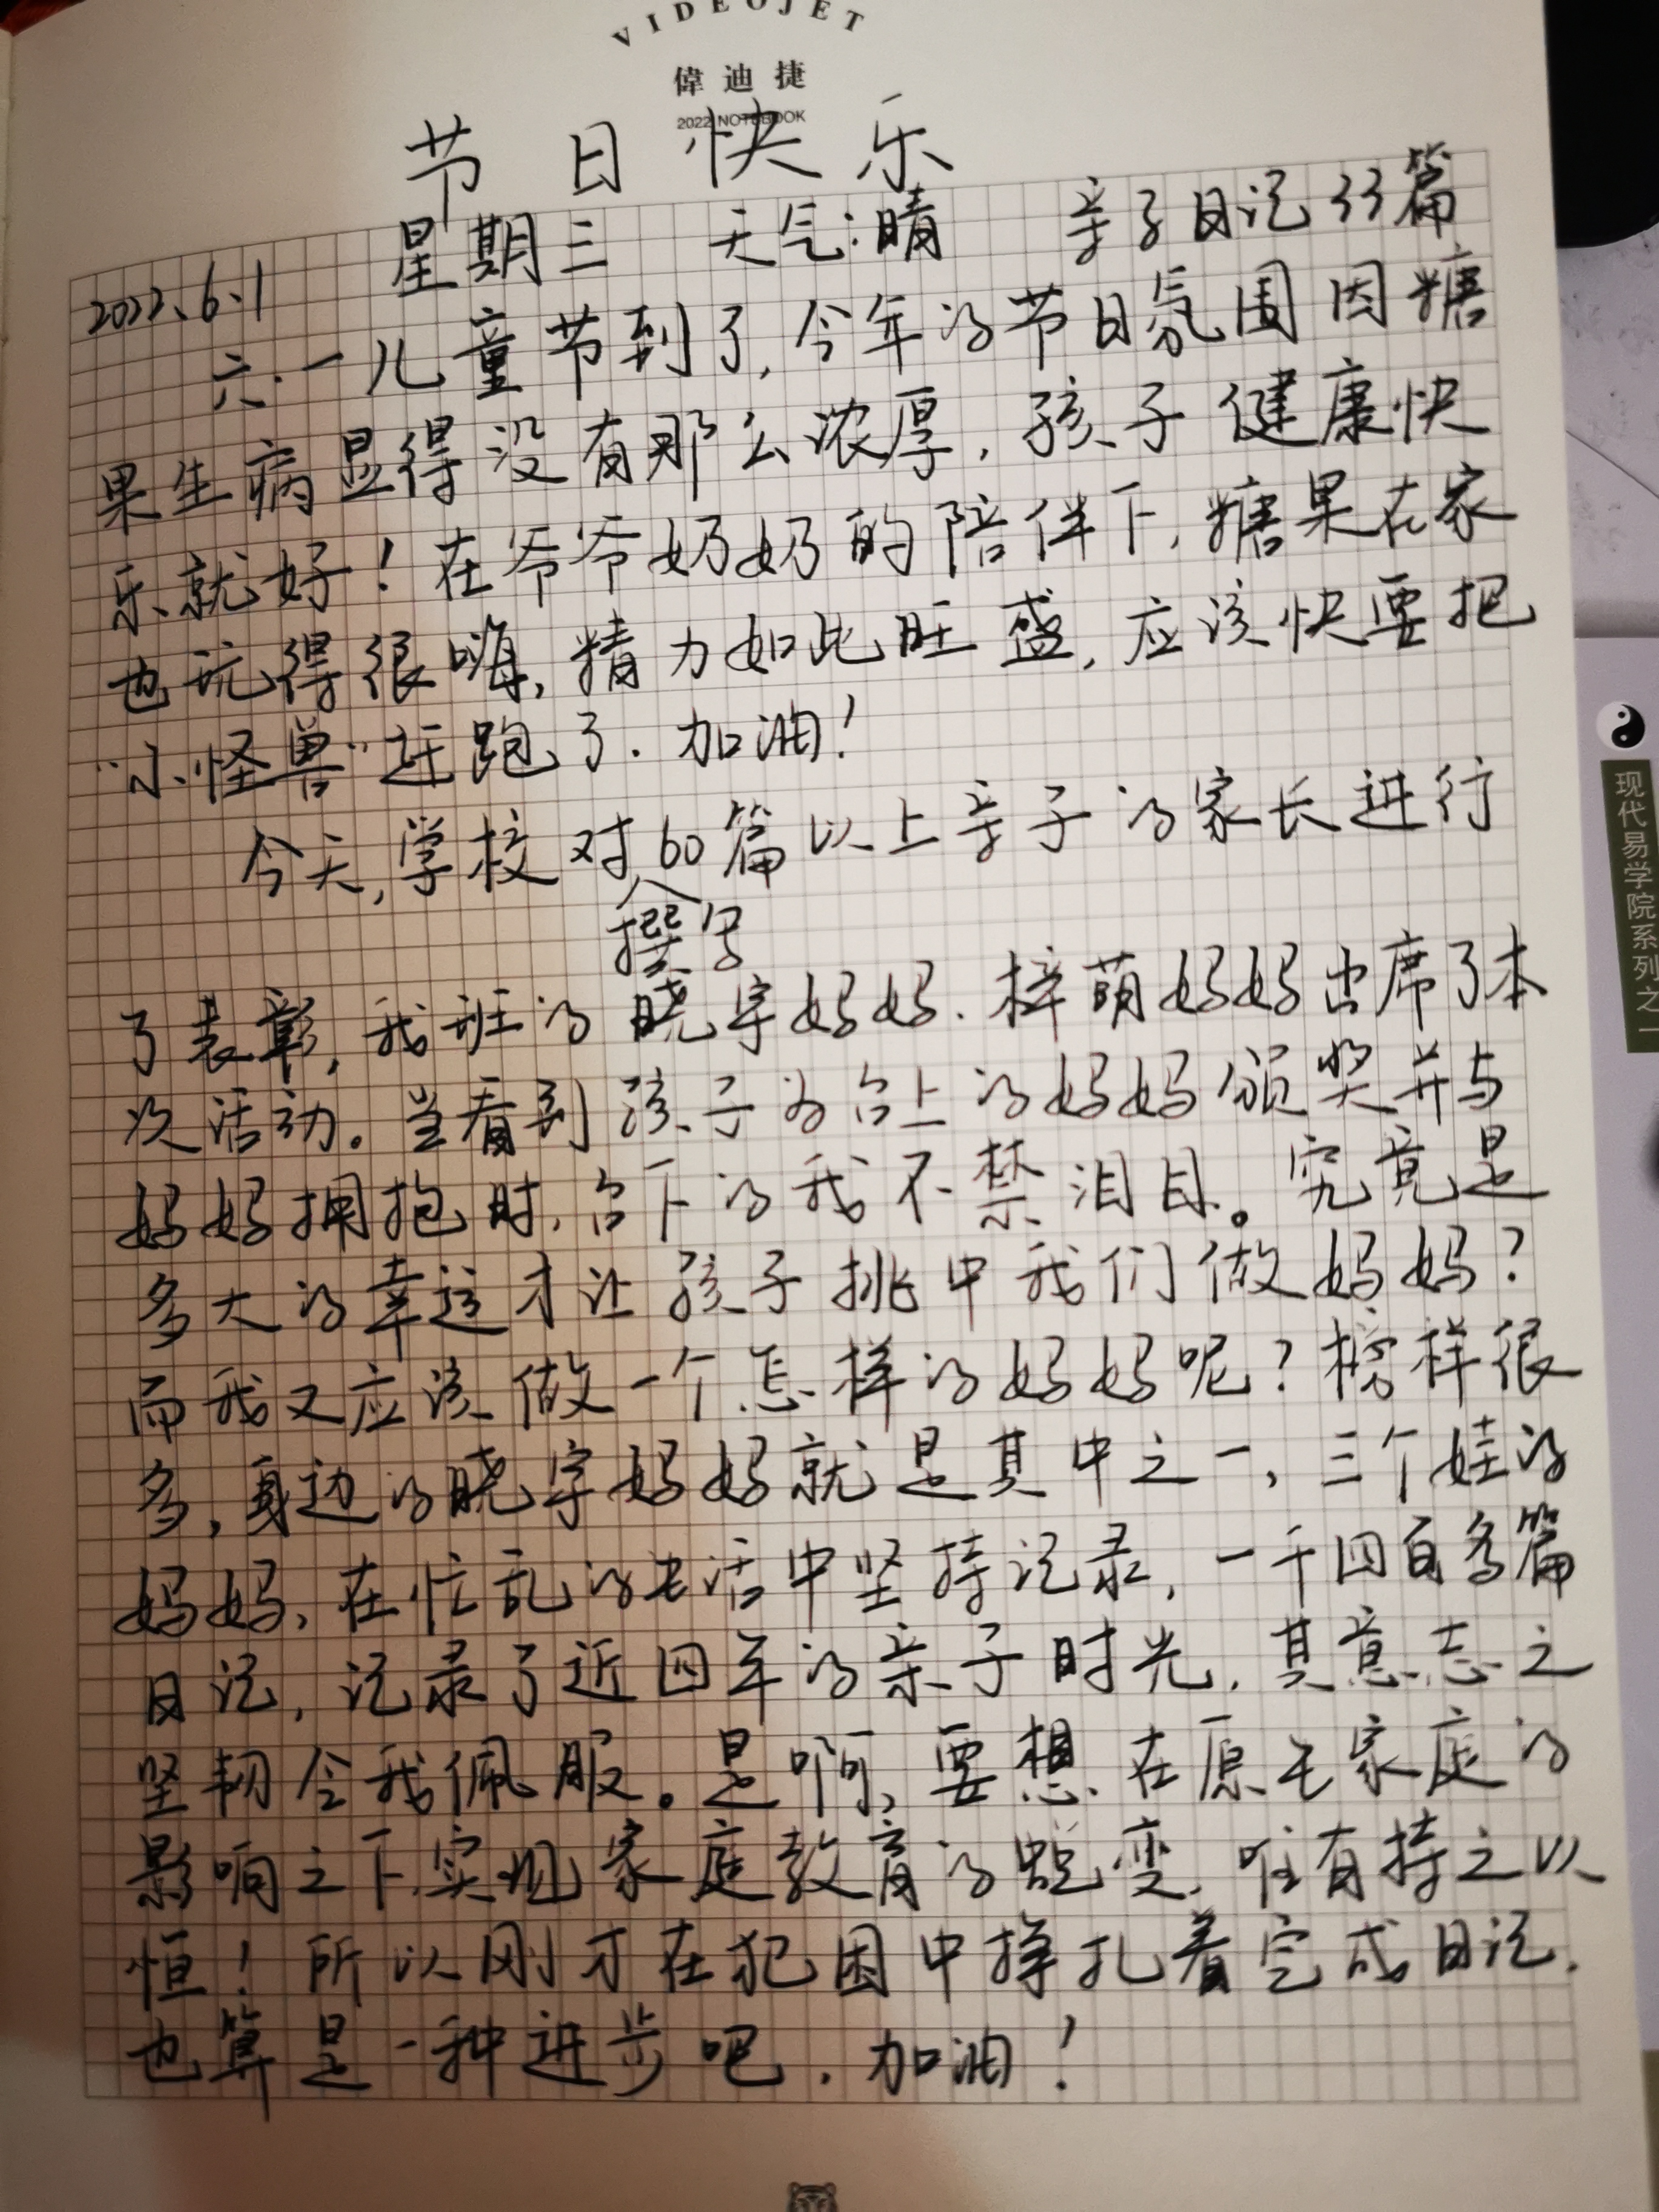 VIDEOJET
偉迪捷
2022 NOTEBOOK
节日快乐
2022.6.1 星期三 天气:晴 亲子日记33篇
六·一儿童节到了,今年的节日氛围因糖
果生病显得没有那么浓厚,孩子健康快
乐就好!在爷爷奶奶的陪伴下,糖果在家
也玩得很嗨,精力如此旺盛,应该快要把
“小怪兽”赶跑了.加油!
今天,学校对60篇以上亲子的家长进行
撰写
了表彰,我班的晓宇妈妈.梓萌妈妈出席了本
次活动。当看到孩子为台上的妈妈颁奖并与
妈妈拥抱时,台下的我不禁泪目。究竟是
多大的幸运才让孩子挑中我们做妈妈?
而我又应该做一个怎样的妈妈呢?榜样很
多,身边的晓宇妈妈就是其中之一,三个娃的
妈妈,在忙乱的生活中坚持记录,一千四百多篇
日记,记录了近四年的亲子时光,其意志之
坚韧令我佩服。是啊,要想在原生家庭的
影响之下,实现家庭教育的蜕变,唯有持之以
恒!所以刚才在犯困中挣扎着完成日记,
也算是一种进步吧.加油!
现代易学院系列之一